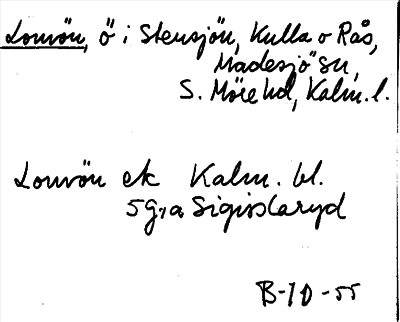 Lomön, ö i Stensjön, Kulla o Rås,
Madesjö sn,
S. Möre hd, Kalm. l.
Lomön ek Kalm. bl.
5 g, a
B-10-55